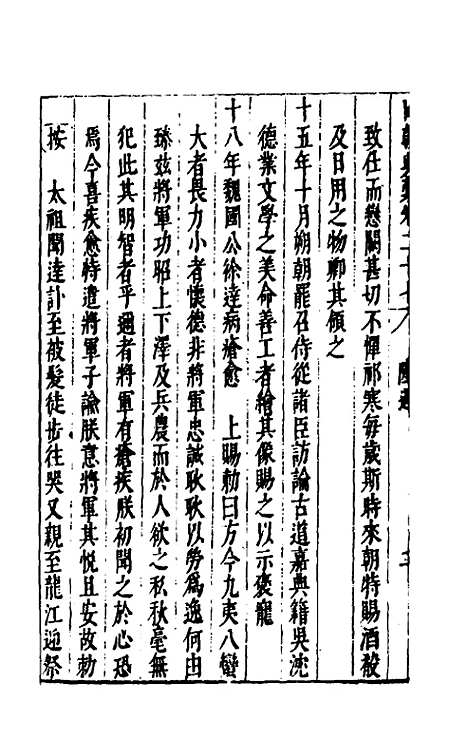 致仕而戀闕甚切不憚祁寒每歲斯時來朝特賜酒殽
及日用之物卿其領之
十五年十月朔朝罷召侍從諸臣訪論古道嘉典籍吳沈
德業文學之美命善工者繪其像賜之以示褒寵
十八年魏國公徐達病瘡愈　上賜勅曰方今九夷八蠻
大者畏力小者懷德非將軍忠誠耿耿以勞為逸何由
臻茲將軍功昭上下澤及兵農而於人欲之私秋毫無
犯此其明智者乎邇者將軍有瘡疾朕初聞之於心恐
焉今喜疾愈特遣將軍子諭朕意將軍其悅且安故勅
按　太祖聞達訃至被髮徒步往哭又親至龍江迎祭